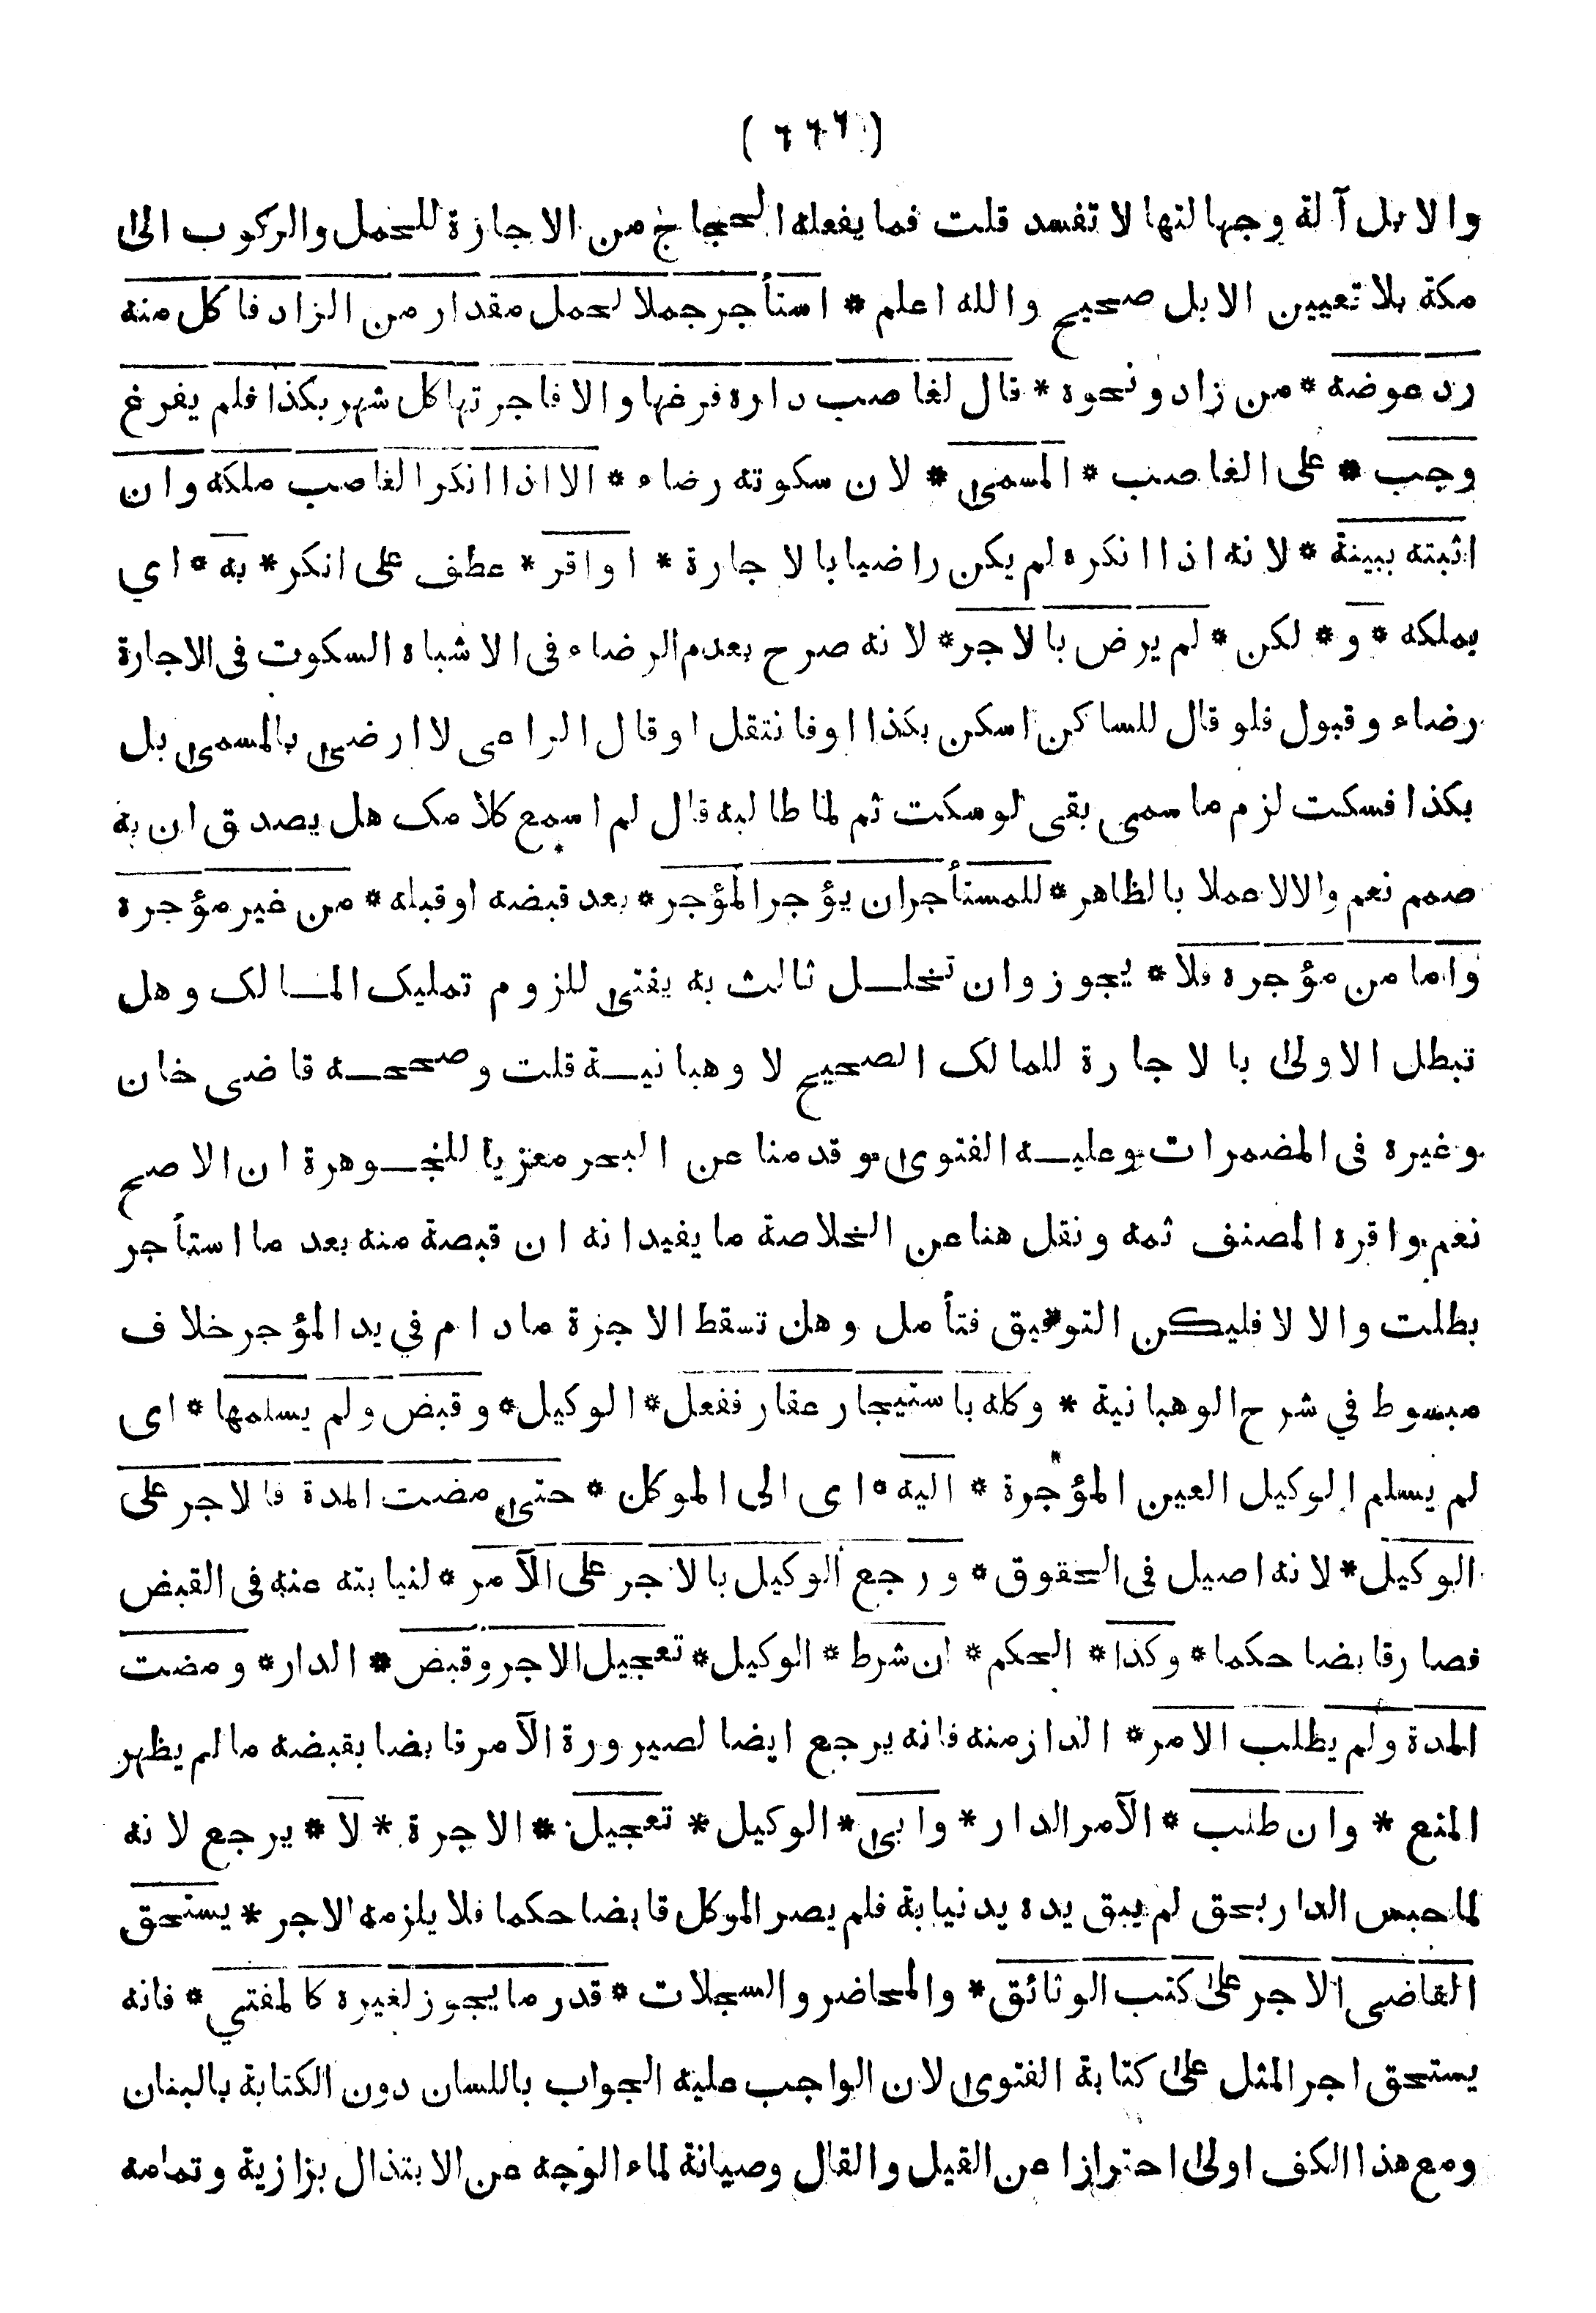 ( ٦٦٦ )
والابل آلة وجهالتها لا تفسد قلت فما يفعله الحجاج من الاجازة للحمل والركوب الى
مكة بلا تعيين الابل صحيح والله اعلم * استأجر جملا لحمل مقدار من الزاد فاكل منه
رد عوضه * من زاد ونحوه * قال لغاصب داره فرغها والا فاجرتها كل شهر بكذا فلم يفرغ
وجب * على الغاصب * المسمى * لان سكوته رضاء * الا اذا انكر الغاصب ملكه وان
اثبته ببينة * لانه اذا انكره لم يكن راضيا بالاجارة * او اقر * عطف على انكر * به * اي
بملكه * و * لكن * لم يرض بالاجر * لانه صرح بعدم الرضاء فى الاشباه السكوت فى الاجارة
رضاء وقبول فلو قال للساكن اسكن بكذا اوفا نتقل او قال الراعى لا ارضى بالمسمى بل
بكذا فسكت لزم ما سمى بقى لو سكت ثم لما طالبه قال لم اسمع كلامك هل يصدق ان به
صمم نعم والا لا عملا بالظاهر * للمستأجر ان يؤجر المؤجر * بعد قبضه او قبله * من غير مؤجره
واما من مؤجره فلا * يجوز وان تخلل ثالث به يفتى للزوم تمليك المالك وهل
تبطل الاولى بالاجارة للمالك الصحيح لا وهبانية قلت وصححه قاضى خان
وغيره فى المضمرات وعليه الفتوى وقدمنا عن البحر معزيا للجوهرة ان الاصح
نعم واقره المصنف ثمه ونقل هنا عن الخلاصة ما يفيد انه ان قبضة منه بعد ما استأجر
بطلت والا لا فليكن التوفيق فتأمل وهل تسقط الاجرة مادام في يد المؤجر خلاف
مبسوط في شرح الوهبانية * وكله باستيجار عقار ففعل * الوكيل * وقبض ولم يسلمها * اى
لم يسلم الوكيل العين المؤجرة * اليه * اى الى الموكل * حتى مضت المدة فالاجر على
الوكيل * لانه اصيل فى الحقوق * ورجع الوكيل بالاجر على الآمر * لنيابته عنه فى القبض
فصار قابضا حكما * وكذا * الحكم * ان شرط * الوكيل * تعجيل الاجر وقبض * الدار * ومضت
المدة ولم يطلب الامر * الدار منه فانه يرجع ايضا لصيرورة الآمر قابضا بقبضه مالم يظهر
المنع * وان طلب * الآمر الدار * وابى * الوكيل * تعجيل * الاجرة * لا * يرجع لانه
لما حبس الدار بحق لم يبق يده يد نيابة فلم يصر الموكل قابضا حكما فلا يلزمه الاجر * يستحق
القاضى الاجر على كتب الوثائق * والمحاضر والسجلات * قدر ما يجوز لغيره كالمفتي * فانه
يستحق اجر المثل على كتابة الفتوى لان الواجب عليه الجواب باللسان دون الكتابة بالبنان
ومع هذا الكف اولى احترازا عن القيل والقال وصيانة لماء الوجه عن الابتذال بزازية وتمامه